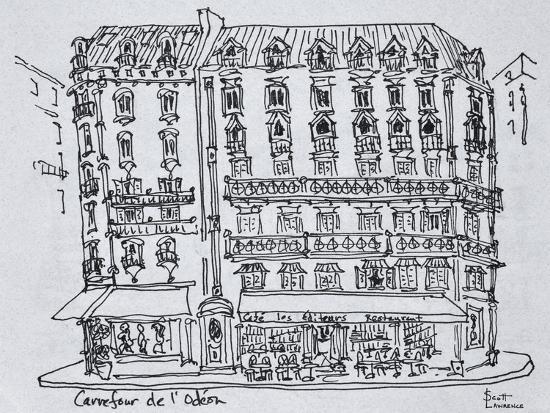 Café les Éditeurs Restaurant
Carrefour de l'Odéon
Scott
Lawrence